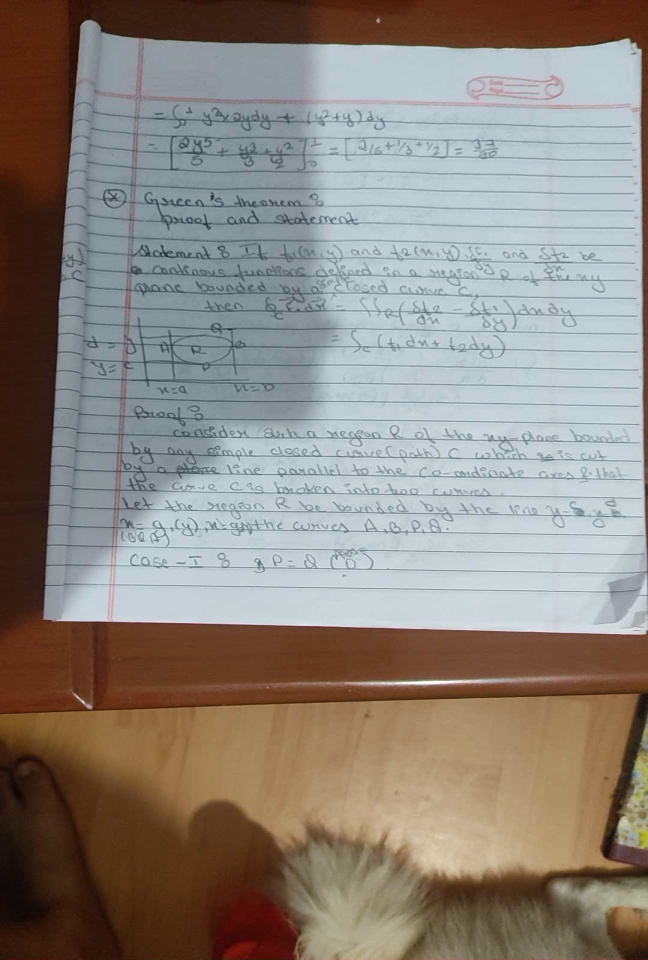 = ∫₀¹ y²x2ydy + (y²+y)dy
= [2y⁵/5 + y³/3 + y²/2]₀¹ = [2/5+1/3+1/2] = 37/30
Green's theorem :
proof and statement
Statement : If f₁(x,y) and f₂(x,y), and δf₂ be
a continous functions defined in a region R of the xy
plane bounded by a simple closed curve C,
then = ∫∫R(δf₂/δx - δf₁/δy)dxdy
= ∫c(f₁dx+f₂dy)
d = y
y = c
A R
x=a x=b
Proof :
Consider such a region R of the xy-plane bounded
by any simple closed curve (path) C which is cut
by a line parallel to the co-ordinate axes & that
the curve C is broken into two curves.
Let the region R be bounded by the line y=
x= g₁(y), the curves A, B, P, Q.
Case - I : P = Q